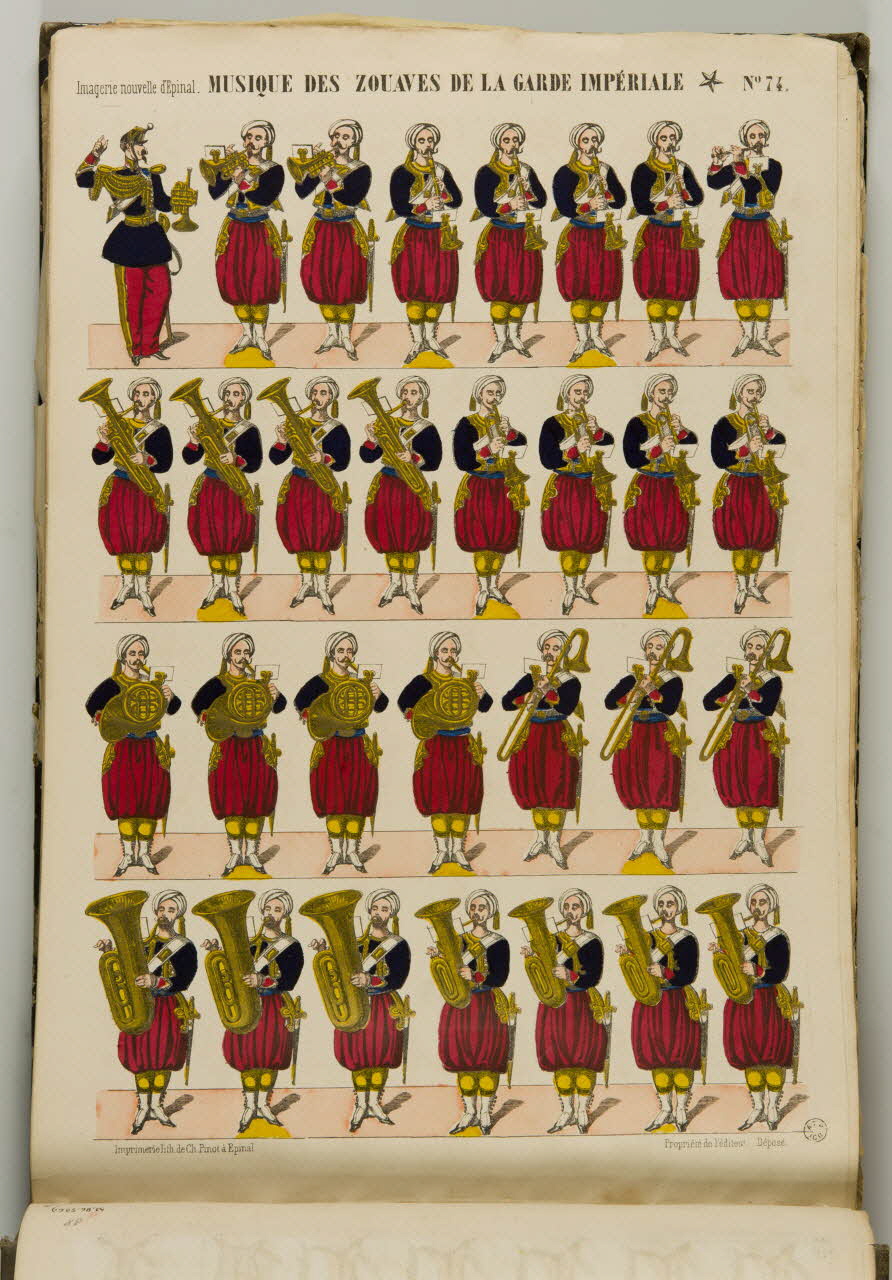 Imagerie nouvelle d'Epinal. MUSIQUE DES ZOUAVES DE LA GARDE IMPÉRIALE Nº 74.
Imprimerie lith. de Ch. Pinot à Epinal
Propriété de l'éditeur. Déposé.